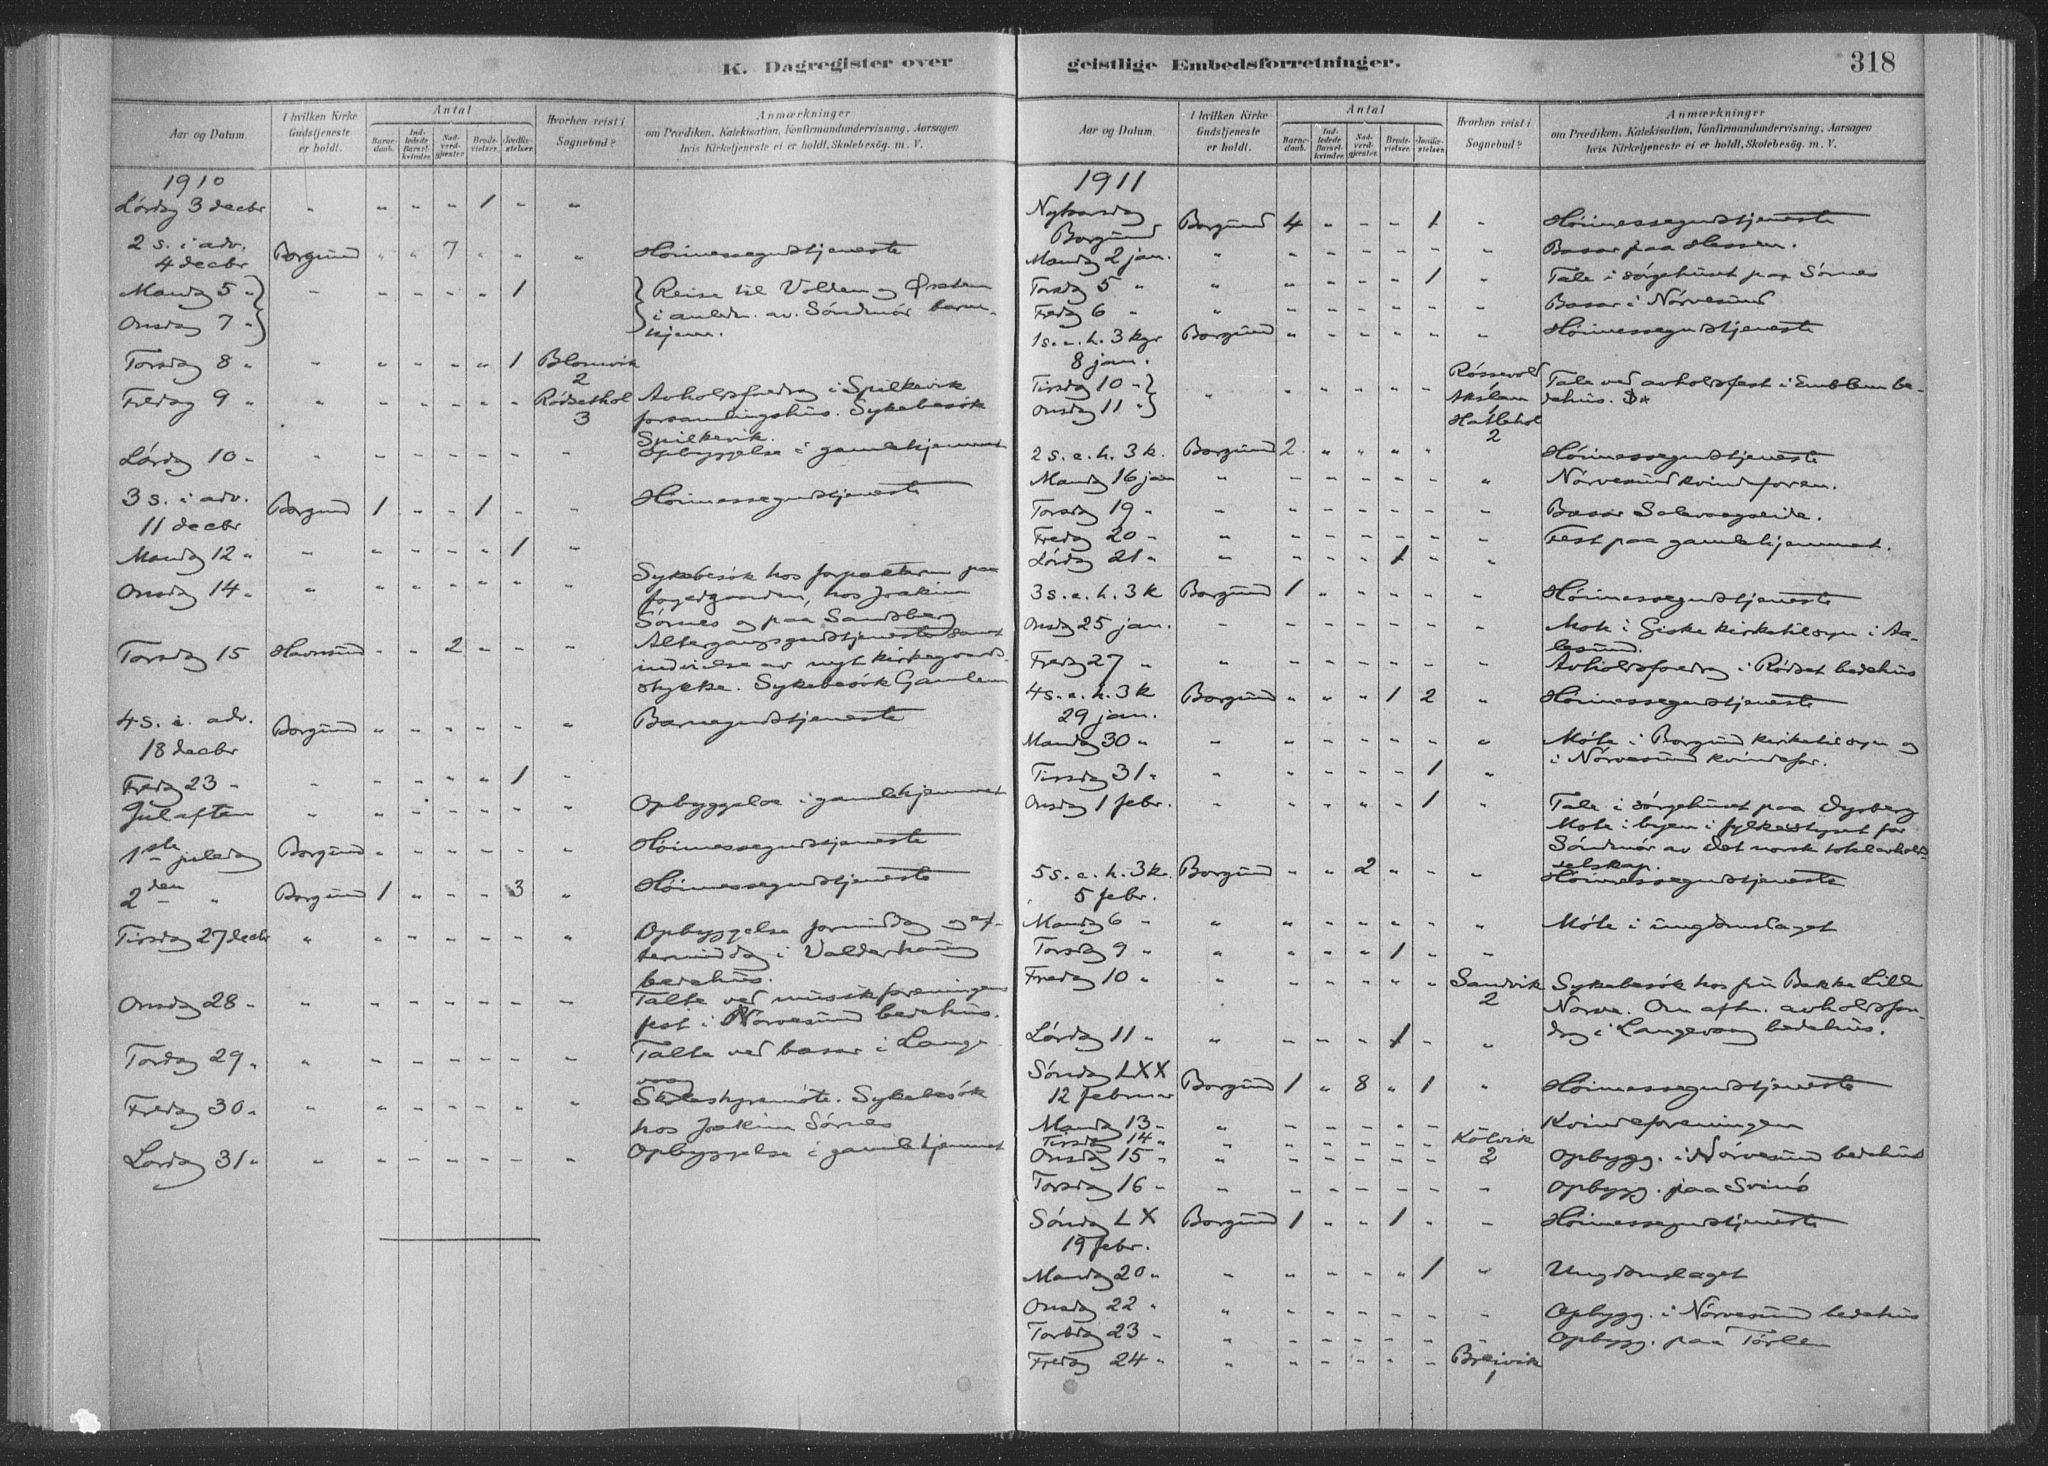 K. Dagregister over
Aar og Datum. | I hvilken Kirke Gudstjeneste er holdt. | Antal | Barnedaab. | Indledede Barselkvinder. | Nadverdgjester | Brudevielser. | Jordfæstelser. | Hvorhen reist i Sognebud? | Anmærkninger om Prædiken, Katekisation, Konfirmandundervisning, Aarsagen hvis Kirketjeneste ei er holdt, Skolebesøg. m. V.
1910
Lørdag 3 decbr " " " " 1 " "
2 s. i adv. 4 decbr Borgund " " 7 " " " Høimessegudstjeneste
Mandag 5 " " " " " " 1 Reise til Volden og Ørsten
Onsdag 7 " i anledn. av Søndmør barnehjem.
Torsdag 8 " " " " " " 1 Blomvik 2
Fredag 9 " " " " " " " Rødsethol 3 Avholdsforedrag i Spilkevik
forsamlingshus. Sykebesøk
Spilkevik.
Lørdag 10 " " " " " " " " Opbyggelse i gamlehjemmet
3 s. i adv. 11 decbr Borgund 1 " " 1 " " Høimessegudstjeneste
Mandag 12 " " " " " " 1 "
Onsdag 14 " " " " " " " " Sykebesøk hos forpakteren paa
fogedgaarden, hos Joakim
Sørnes og paa Sandsberg
Torsdag 15 Havnsund " " 2 " " " Altergangsgudstjeneste samt
indvielse av nyt kirkegaards-
stykke. Sykebesøk Gamlem
4 s. i adv. 18 decbr Borgund " " " " " " Barnegudstjeneste
Fredag 23 " " " " " " 1 "
Julaften " " " " " " " Opbyggelse i gamlehjemmet
1ste juledag Borgund " " " " " " Høimessegudstjeneste
2den " Borgund 1 " " " 3 " Høimessegudstjeneste
Tirsdag 27 decbr " " " " " " " Opbyggelse formiddag og ef-
termiddag i Valderhaug
bedehus.
Onsdag 28 " " " " " " " " Talte ved musikforeningens
fest i Nørvesund bedehus.
Torsdag 29 " " " " " " " " Talte ved basar i Lange-
vaag
Fredag 30 " " " " " " " " Skolestyremøte. Sykebesøk
hos Joakim Sørnes
Lørdag 31 " " " " " " " " Opbyggelse i gamlehjemmet
geistlige Embedsforretninger.
318
Aar og Datum | I hvilken Kirke Gudstjeneste er holdt. | Antal | Barnedaab. | Indledede Barselkvinder. | Nadverdgjester. | Brudevielser. | Jordfæstelser. | Hvorhen reist i Sognebud? | Anmærkninger om Prædiken, Katekisation, Konfirmandundervisning, Aarsagen hvis Kirketjeneste ei er holdt, Skolebesøg. m. V.
1911
Nytaarsdag Borgund Borgund 4 " " " 1 " Høimessegudstjeneste
Mandag 2 jan. " " " " " " " Basar paa Hessen.
Torsdag 5 " " " " " " 1 " Tale i sørgehuset paa Sørnes
Fredag 6 " " " " " " " " Basar i Nørvesund
1 s. e. h. 3 kgr 8 jan. Borgund " " " " " Høimessegudstjeneste
Tirsdag 10 " Røssevold Tale ved avholdsfest i Emblem be-
Onsdag 11 " " " " " " " Akslen dehus.
1
Hatlehol 2
2 s. e. h. 3 k. Borgund 2 " " " " Høimessegudstjeneste
Mandag 16 jan " " " " " " " Nørvesund kvindeforen.
Torsdag 19 " " " " " " " " Basar Solevaagseide.
Fredag 20 " " " " " " " " Fest paa gamlehjemmet.
Lørdag 21 " " " " " 1 " "
3 s. e. h. 3 k Borgund 1 " " " " " Høimessegudstjeneste
Onsdag 25 jan. " " " " " " " Møte i Giske kirketilsyn i Aa-
lesund.
Fredag 27 " " " " " " " " Avholdsforedrag i Rødset bedehus
4 s. e. h. 3 k 29 jan. Borgund " " " 1 2 " Høimessegudstjeneste
Mandag 30 " " " " " " " " Møte i Borgund kirketilsyn og
i Nørvesund kvindefor.
Tirsdag 31 " " " " " " 1 "
Onsdag 1 febr. " " " " " 1 " Tale i sørgehuset paa Dysberg
Møte i byen i fylkesstyret for
Søndmør av Det norsk totalavholds-
selskap.
5 s. e. h. 3 k. 5 febr. Borgund " " 2 " " " Høimessegudstjeneste
Mandag 6 " " " " " " " " Møte i ungdomslaget
Torsdag 9 " " " " " 1 " "
Fredag 10 " " " " " " " Sandvik 2 Sykebesøk hos fru Bakke Lille
Nørve. Om aftn. avholdsfore-
drag i Langevaag bedehus.
Lørdag 11 " " " " " 1 " "
Søndag LXX 12 februar Borgund 1 " 8 " 1 " Høimessegudstjeneste
Mandag 13 " " " " " " " Kvindeforeningen
Tirsdag 14 " " " " " " " Kolvik 2
Onsdag 15 " " " " " " " Opbygg. i Nørvesund bedehus
Torsdag 16 " " " " " " " " Opbygg. paa Svinø
Søndag LX 19 febr. Borgund 1 " " 1 " " Høimessegudstjeneste
Mandag 20 " " " " " " 1 " Ungdomslaget
Onsdag 22 " " " " " " " " Opbygg. i Nørvesund bedehus
Torsdag 23 " " " " " " " " Opbygg. paa Tørlen
Fredag 24 " " " " " " " Breivik 1